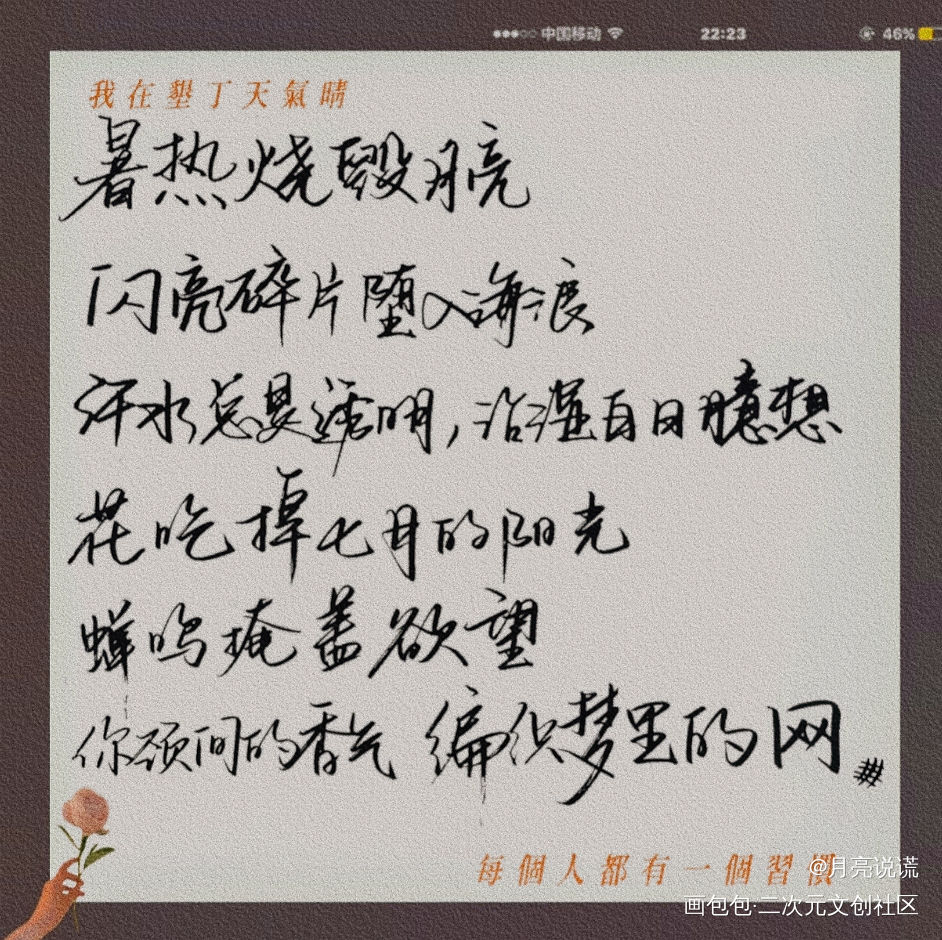 中国移动 22:23 46%
我在墾丁天氣晴
暑热烧毁月亮
闪亮碎片堕入海浪
汗水总是透明,沾湿白日臆想
花吃掉七月的阳光
蝉鸣掩盖欲望
你颈间的香气 编织梦里的网#
每個人都有一個習慣
@月亮说谎
画包包·二次元文创社区